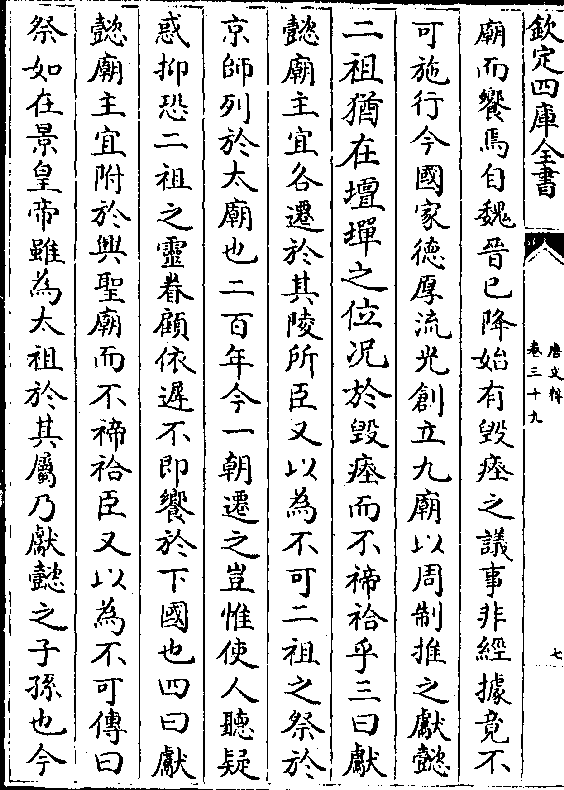 欽定四庫全書
唐文粹
卷三十九
七
廟而饗焉自魏晉已降始有毀瘞之議事非經據竟不
可施行今國家德厚流光創立九廟以周制推之獻懿
二祖猶在壇墠之位况於毀瘞而不禘祫乎三曰獻
懿廟主宜各遷於其陵所臣又以為不可二祖之祭於
京師列於太廟也二百年今一朝遷之豈惟使人聽疑
惑抑恐二祖之靈眷顧依遲不即饗於下國也四曰獻
懿廟主宜附於興聖廟而不禘祫臣又以為不可傳曰
祭如在景皇帝雖為太祖於其屬乃獻懿之子孫也今